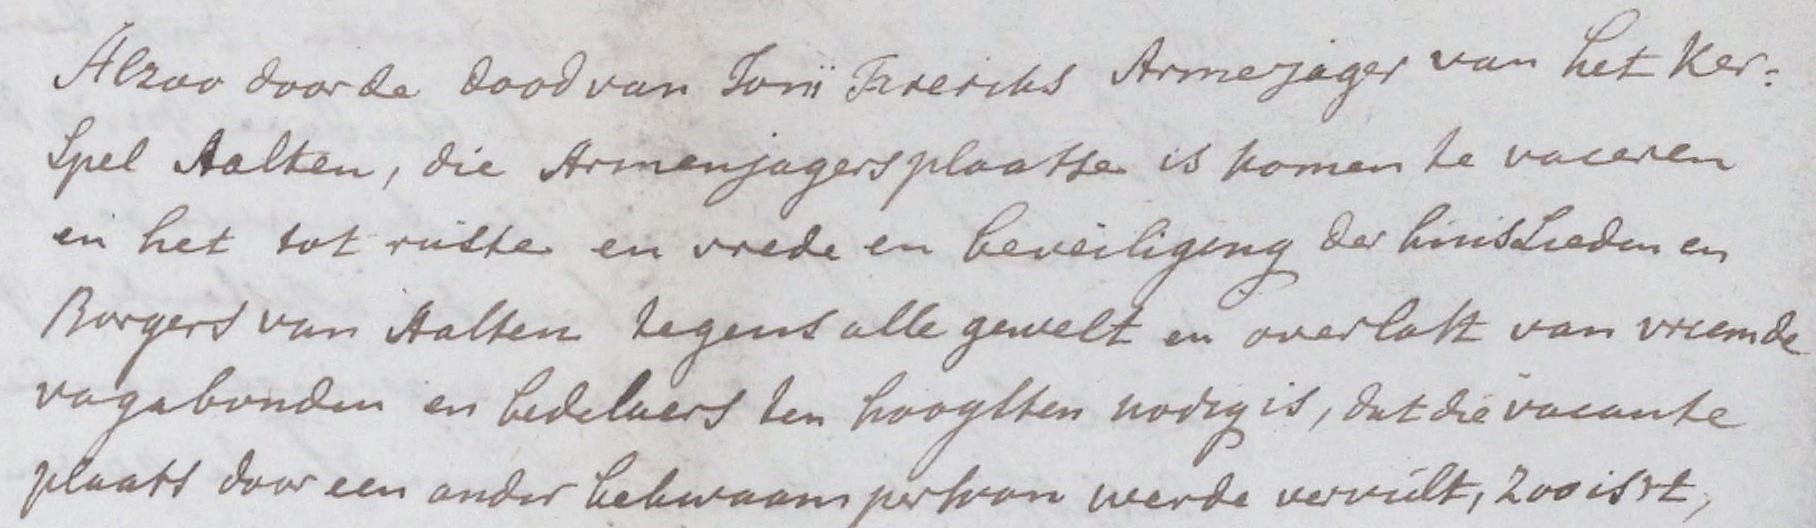 Alzoo door de dood van Tonij Frericks Armejager van het Ker:
spel Aalten, die Armenjagersplaatse is komen te vaceren
en het tot ruste en vrede en beveiliging der huislieden en
Borgers van Aalten tegens alle gewelt en overlast van vreemde
vagabonden en bedelaers ten hoogsten nodig is, dat die vacante
plaats door een ander bekwaam persoon werde vervult, zoo is 't,